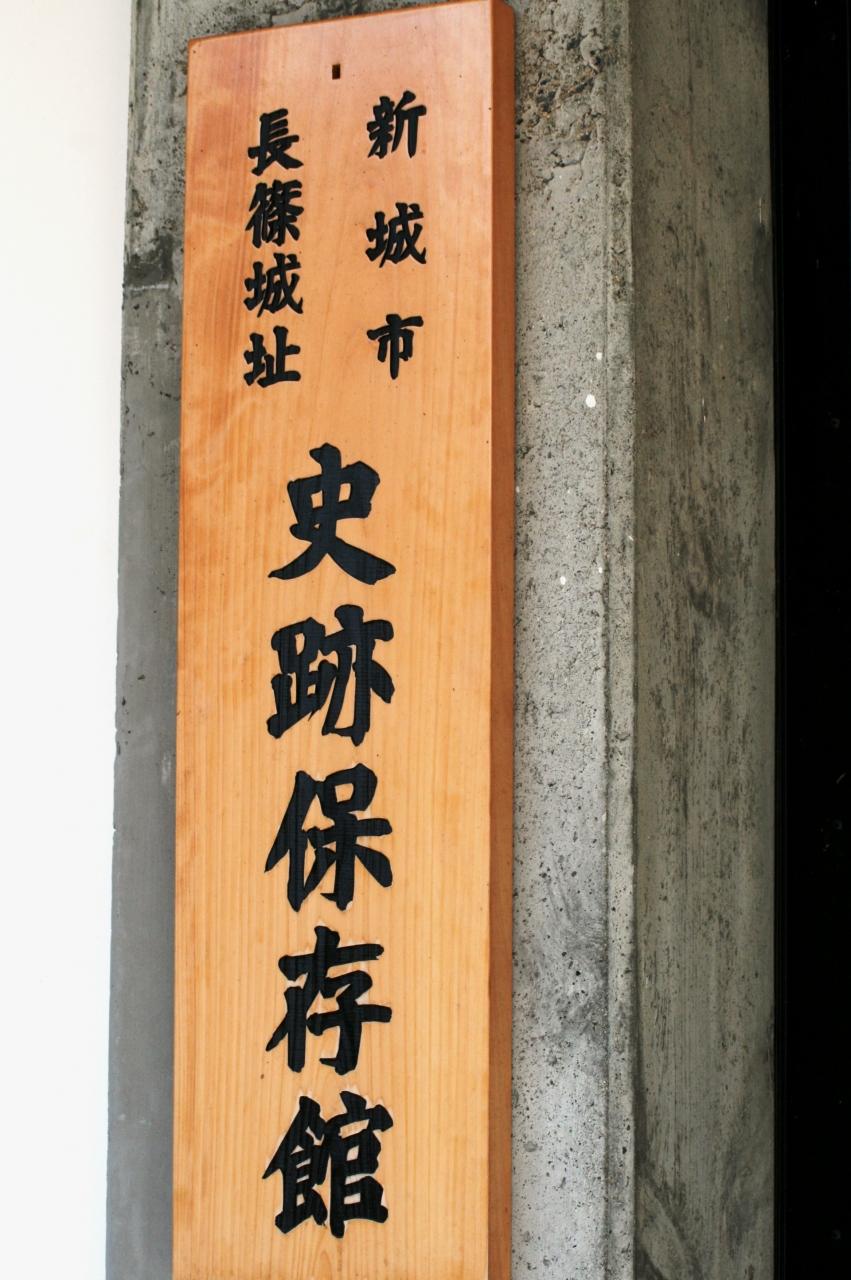 新城市
長篠城址
史跡保存館